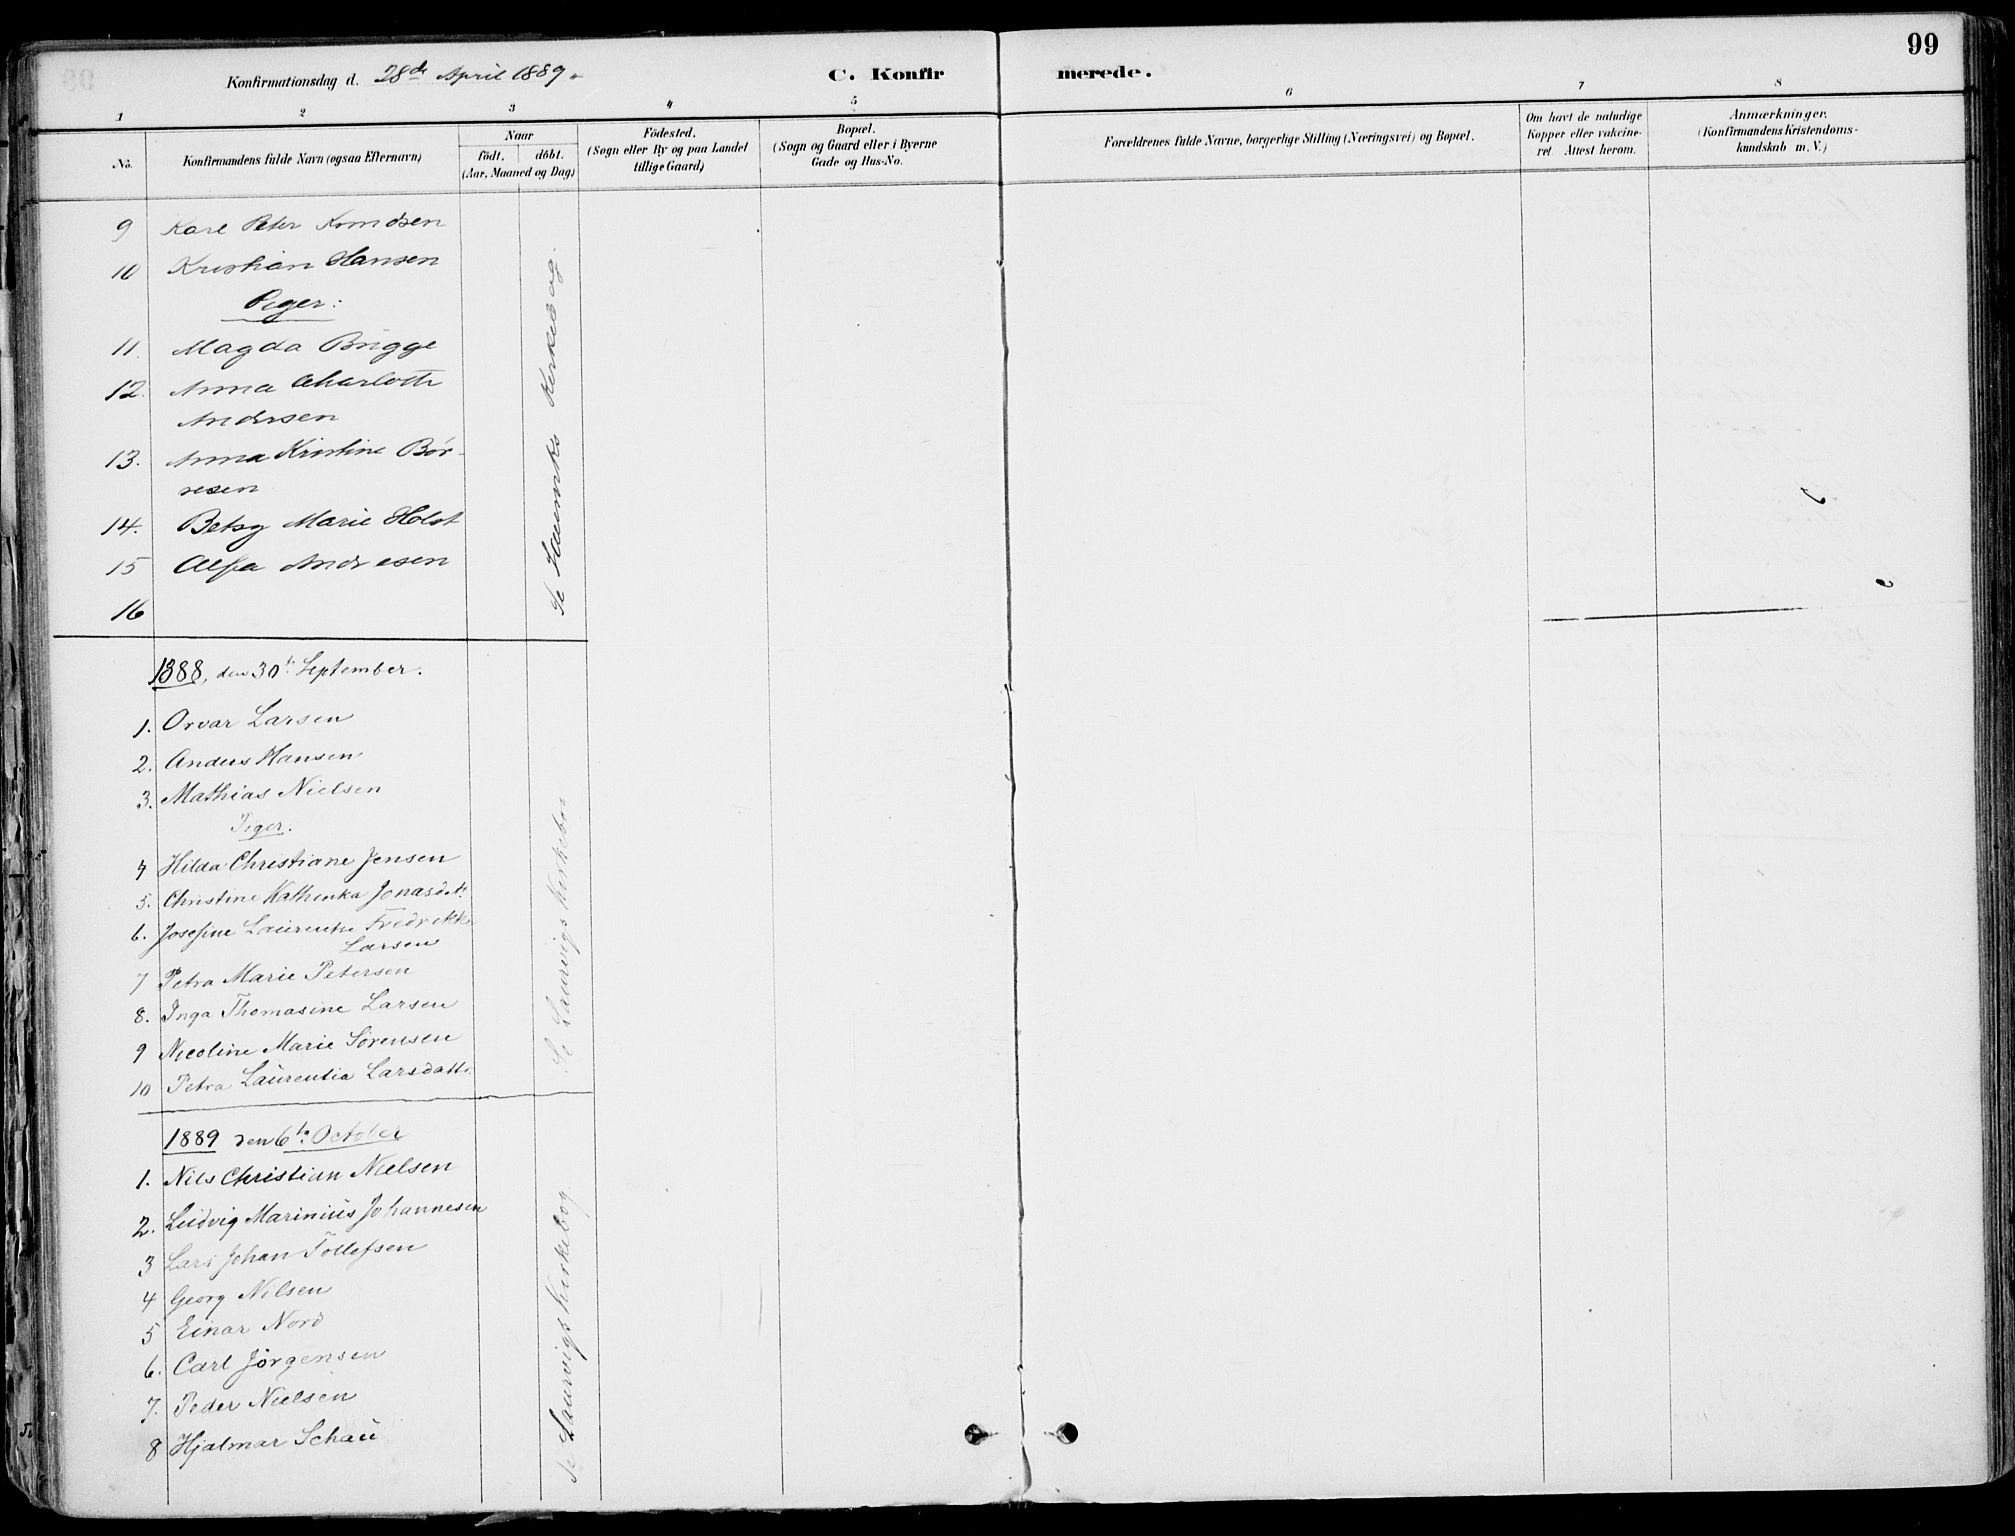 99
Konfirmationsdag d. 28de April 1889.
C. Konfirmerede.
1 2 3 4 5 6 7 8
No.
Konfirmandens fulde Navn (ogsaa Efternavn)
Naar
födt. döbt.
(Aar, Maaned og Dag)
Födested.
(Sogn eller By og paa Landet
tillige Gaard)
Bopæl.
(Sogn og Gaard eller i Byerne
Gade og Hus-No.
Forældrenes fulde Navne, borgerlige Stilling (Næringsvei) og Bopæl.
Om havt de naturlige
Kopper eller vakcine-
ret Attest herom.
Anmærkninger.
(Konfirmandens Kristendoms-
kundskab m. V.)
9 Karl Peter Knudsen
10 Kristian Hansen
Piger:
11. Magda Brügge
12. Anna Charlotte
Andersen
13. Anna Kristine Bör-
resen
14. Betsy Marie Holst
15 Alfa Andresen
16
Se Laurviks Kirkebog.
1888, den 30te September.
1. Orvar Larsen
2. Anders Hansen
3. Mathias Nielsen
Piger.
4 Hilda Christiane Jensen
5. Christine Kathinka Jonasdt.
6. Josefine Laurentze Fredrikke
Larsen
7 Petra Marie Petersen
8. Inga Thomasine Larsen
9 Nicoline Marie Sörensen
10 Petra Laurentia Larsdatt.
Se Laurvigs Kirkebog
1889 den 6te October
1. Nils Christian Nielsen
2. Ludvig Marinius Johannesen
3 Lars Johan Tollefsen
4 Georg Nilsen
5 Einar Nord
6. Carl Jörgensen
7. Peder Nielsen
8 Hjalmar Schau
Se Laurvigs Kirkebog